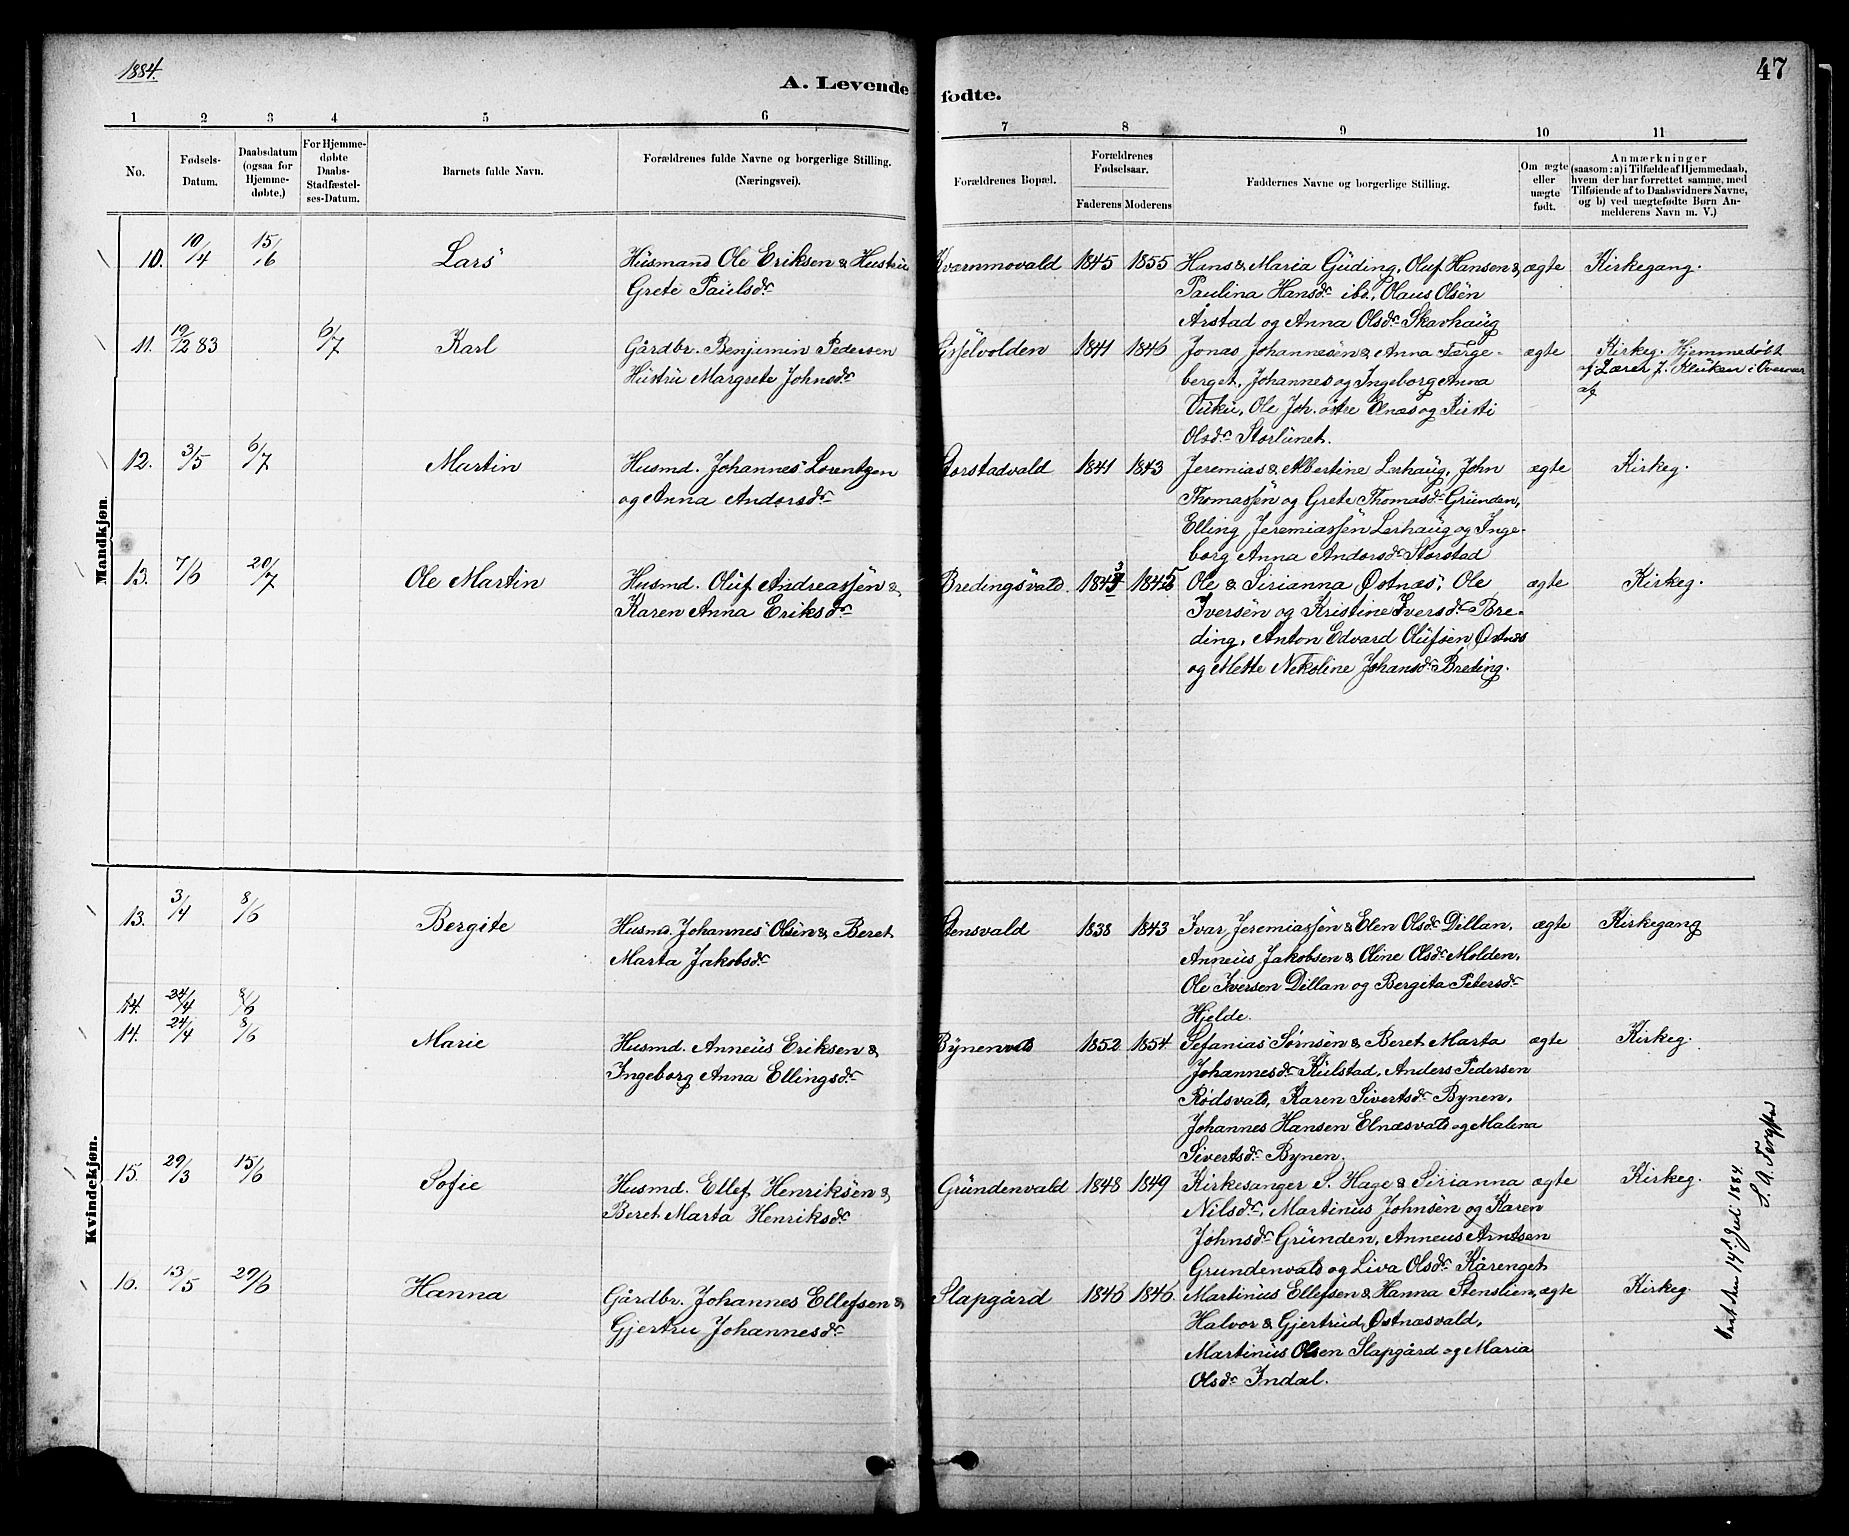 1884.
47
A. Levende fødte.
1 2 3 4 5 6 7 8 9 10 11
No.
Fødsels-
Datum.
Daabsdatum
(ogsaa for
Hjemme-
døbte.)
For Hjemme-
døbte
Daabs-
Stadfæstel-
ses-Datum.
Barnets fulde Navn.
Forældrenes fulde Navne og borgerlige Stilling.
(Næringsvei).
Forældrenes Bopæl.
Forældrenes
Fødselsaar.
Faderens Moderens
Faddernes Navne og borgerlige Stilling.
Om ægte
eller
uægte
født.
Anmærkninger
(saasom: a) i Tilfælde af Hjemmedaab,
hvem der har forrettet samme, med
Tilføiende af to Daabsvidners Navne,
og b) ved uægtefødte Børn An-
melderens Navn m. V.)
Mandkjøn.
10. 10/4 15/6 Lars Husmand Ole Eriksen & Hustru Kvarnmovald 1845 1855 Hans & Maria Guding, Oluf Hansen & ægte Kirkegang.
Grete Paulsdr. Paulina Hansdr. ibd., Olaus Olsen
Årstad og Anna Olsdr. Skavhaug
11. 19/12 83 6/7 Karl Gårdbr. Benjamin Pedersen Gisselvolden 1841 1846 Jonas Johannesen & Anna Færge- ægte Kirkeg. Hjemmedøbt
Hustru Margrete Johnsdr. berget, Johannes og Ingeborg Anna af Lærer J. Kluken i Overvær
Vuku, Ole Joh. østre Elnæs og Kirsti af
Olsdr. Storlunet.
12. 3/5 6/7 Martin Husmd. Johannes Lorentzen Storstadvald 1841 1843 Jeremias & Albertine Lerhaug, John ægte Kirkeg.
og Anna Andorsdr. Thomassen og Grete Thomasdr. Grunden,
Elling Jeremiassen Lerhaug og Inge-
borg Anna Andorsdr. Storstad
13. 7/6 20/7 Ole Martin Husmd. Oluf Andreassen & Bredingsvald. 1843 1845 Ole & Sirianna Østnæs, Ole ægte Kirkeg.
Karen Anna Eriksdr. Iversen og Kristine Iversdr. Bre-
ding, Anton Edvard Olufsen Østnæs
og Mette Nekoline Johansdr. Breding.
Kvindekjøn.
13. 3/4 8/6 Bergite Husmd. Johannes Olsen & Beret Stensvald 1838 1843 Ivar Jeremiassen & Elen Olsdr. Dillan, ægte Kirkegang
Marta Jakobsdr. Anneus Jakobsen & Oline Olsdr. Molden,
Ole Iversen Dillan og Bergita Petersdr.
Hjelde.
14. 24/4 8/6
14. 24/4 8/6 Marie Husmd. Anneus Eriksen & Bynenvald 1852 1854 Sefanias Sørnsen & Beret Marta ægte Kirkeg.
Ingeborg Anna Ellingsdr. Johannesdr. Kulstad, Anders Pedersen
Rødsvald, Karen Sivertsdr. Bynen,
Johannes Hansen Elnæsvald og Malena
Sivertsdr. Bynen.
15. 29/3 15/6 Sofie Husmd. Ellef Henriksen & Grundenvald 1848 1849 Kirkesanger S. Hage & Sirianna ægte Kirkeg.
Beret Marta Henriksdr. Nilsdr., Martinus Johnsen og Karen
Johnsdr. Grunden, Anneus Arntsen
Grundenvald og Liva Olsdr. Kårenget
16. 13/5 29/6 Hanna Gårdbr. Johannes Ellefsen & Slapgård 1846 1846. Martinus Ellefsen & Hanna Stenslien, ægte Kirkeg.
Gjertru Johannesdr. Halvor & Gjertrud Østnæsvald,
Martinus Olsen Slapgård og Maria
Olsdr. Indal.
den 14de Juli 1884.